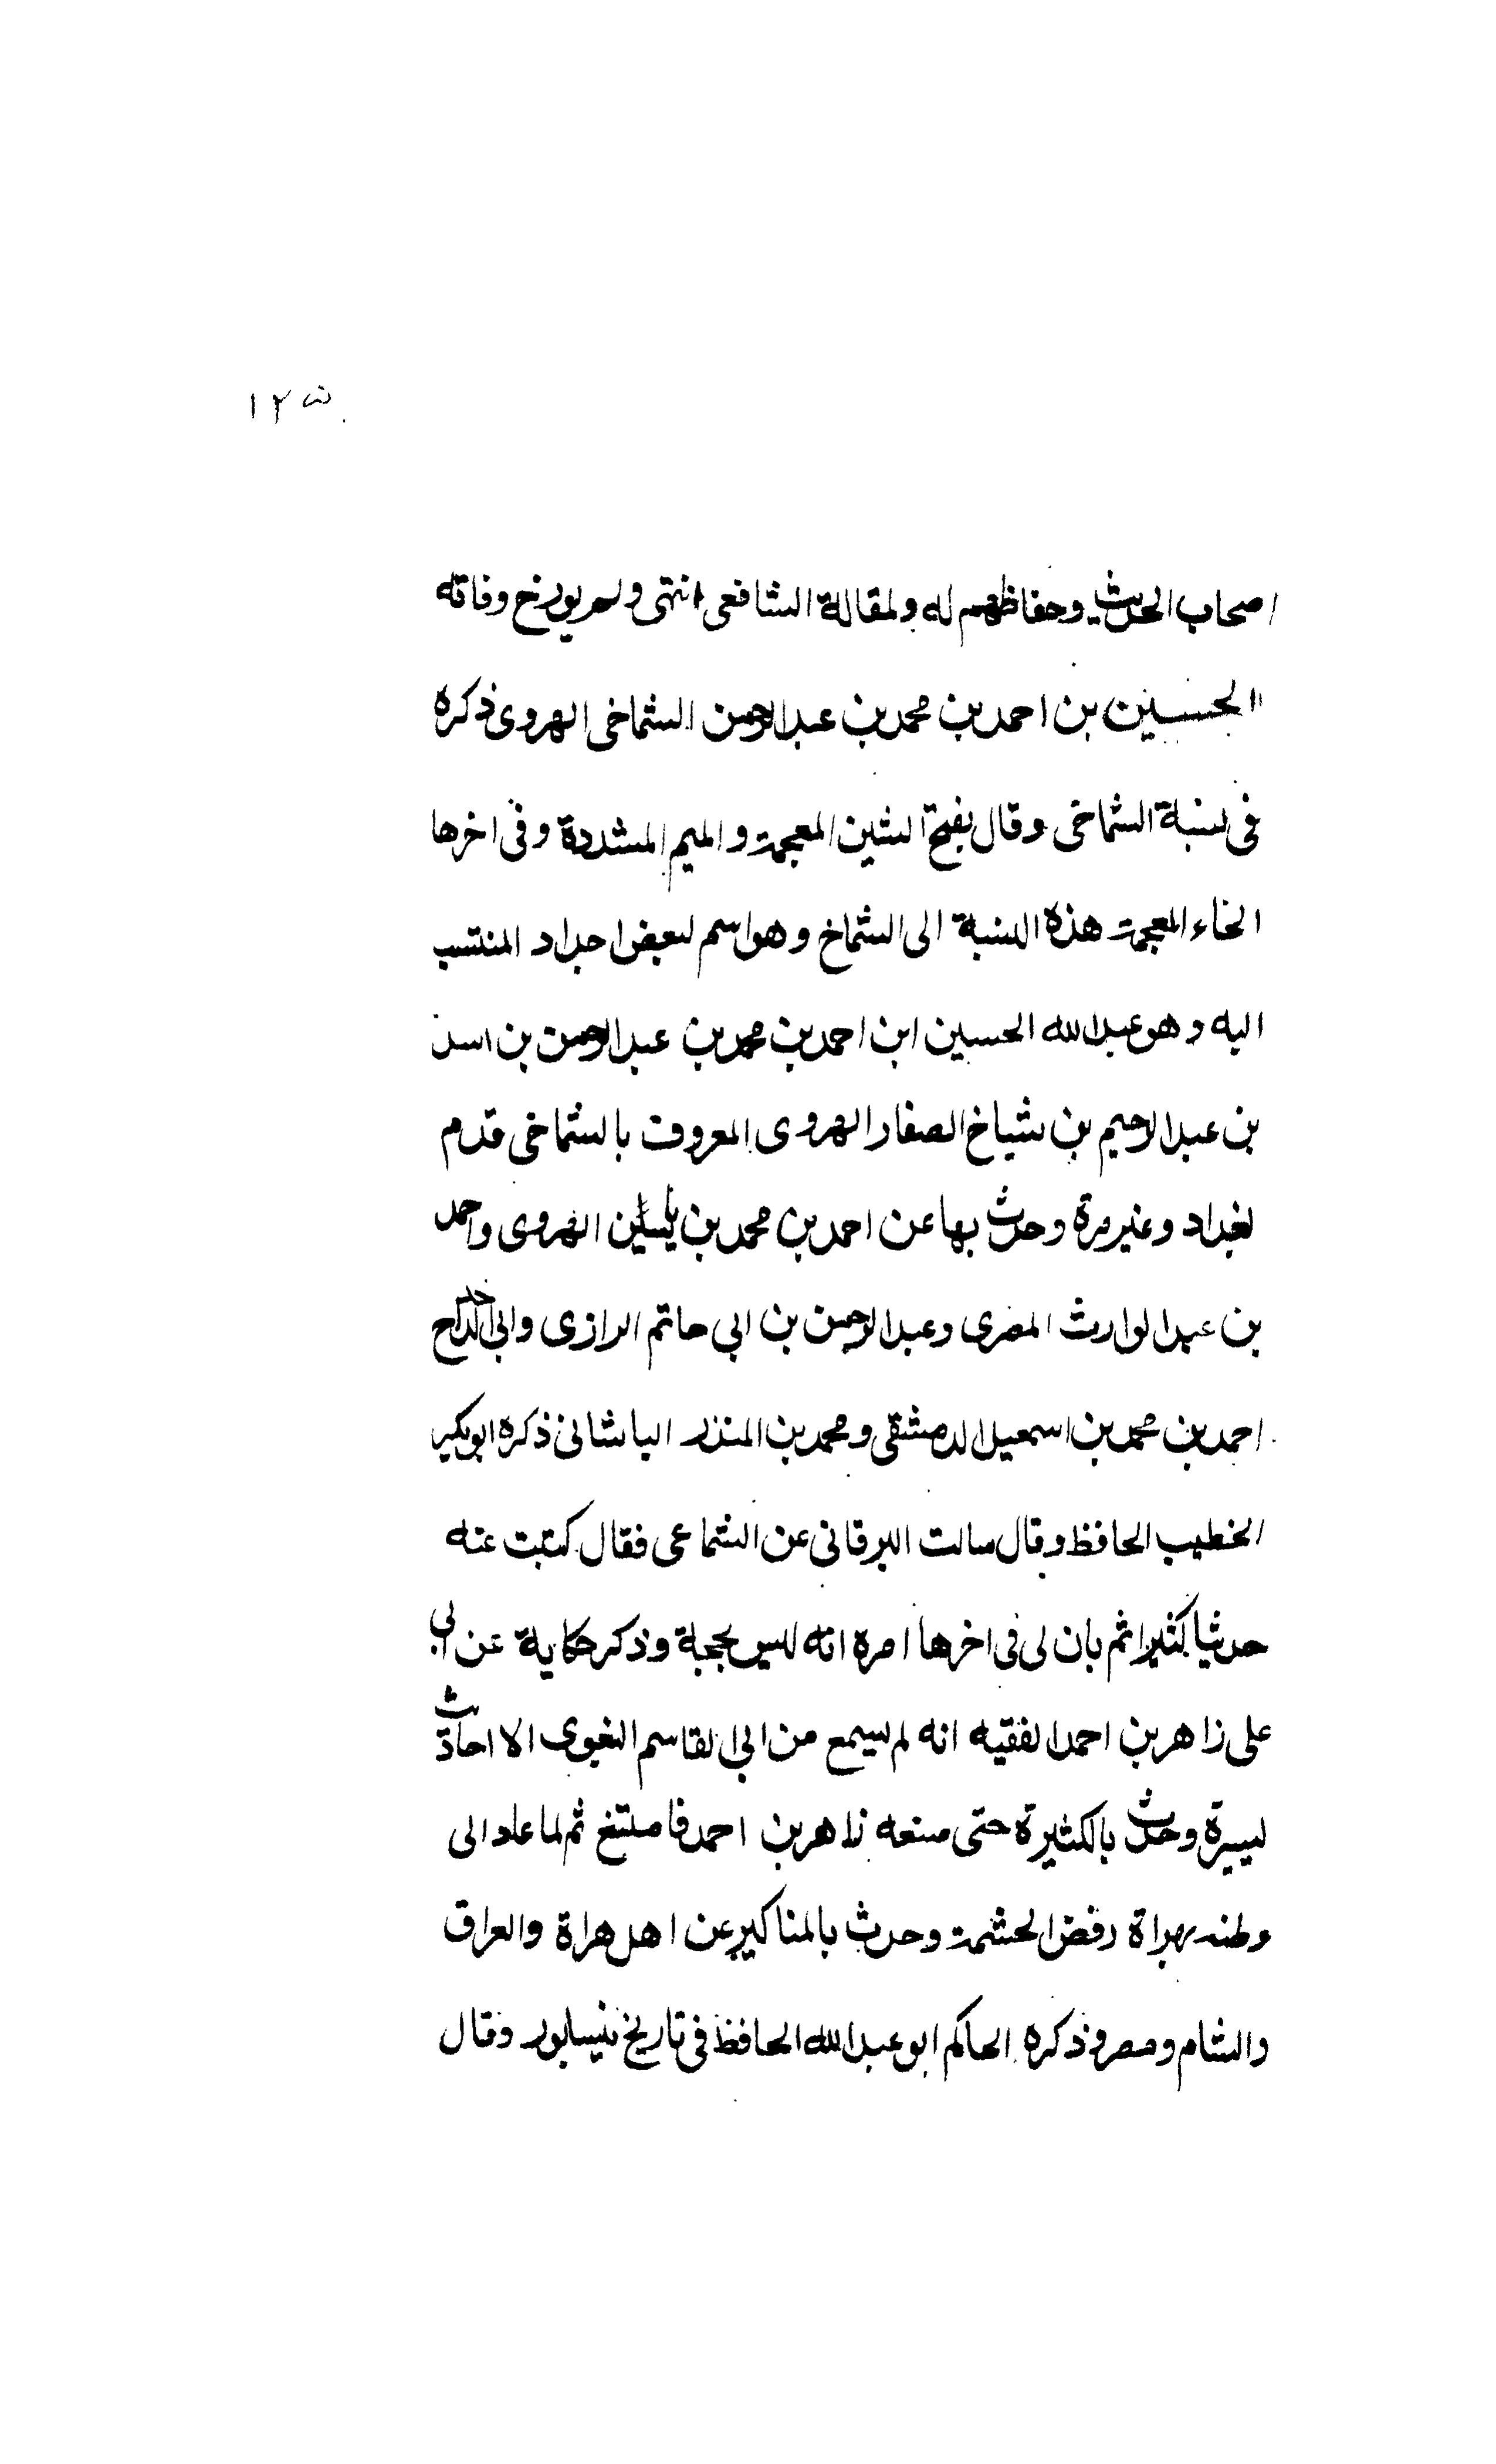 ١٢٥
اصحاب الحديث وحفاظهم له ولمقالة الشافعى انتهى ولم يورخ وفاته
الحسين بن احمد بن محمد بن عبد الرحمن الشماخى الهروى ذكره
فى نسبة الشماخى وقال بفتح الشين المعجمة والميم المشددة وفى اخرها
الخاء المعجمة هذه النسبة الى الشماخ وهو اسم لبعض اجداد المنتسب
اليه وهو عبد الله الحسين ابن احمد بن محمد بن عبد الرحمن بن اسد
بن عبد الرحيم بن شياخ الصفار الهروى المعروف بالشماخى قدم
بغداد وغير مرة وحدث بها عن احمد بن محمد بن ياسين الهروى واحمد
بن عبد الوارث المصرى وعبد الرحمن بن ابي حاتم الرازى وابي الدحداح
احمد بن محمد بن اسمعيل الدمشقى ومحمد بن المنذر الباشانى ذكره ابو بكير
الخطيب الحافظ وقال سالت البرقانى عن الشماعى فقال كتبت عنه
حديثا كثيرا ثم بان لى فى اخرها امره انه ليس بحجة وذكر حكاية عن ابي
على زاهر بن احمد الفقيه انه لم يسمع من ابي القاسم البغوى الا احاديث
يسيرة وحدث بالكثيرة حتى منعه زاهر بن احمد فامتنع ثم لما عاد الى
وطنه بهراة رفض الحشمة وحدث بالمناكير عن اهل هراة والعراق
والشام ومصر وذكره الحاكم ابو عبد الله الحافظ فى تاريخ نيسابور وقال